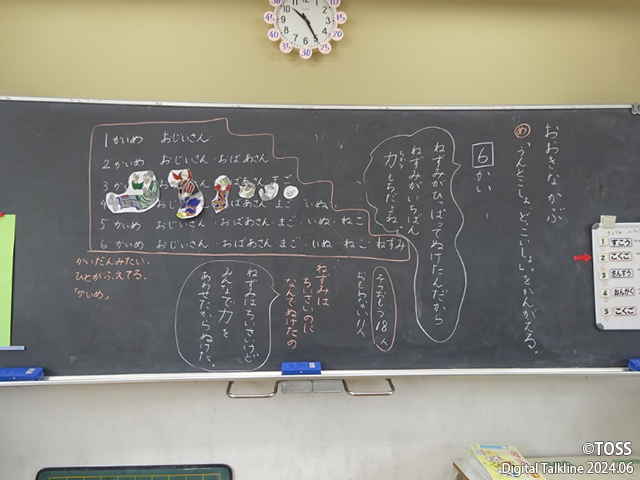 おおきなかぶ
め
「うんとこしょ、どっこいしょ。」をかんがえる。
6かい
ねずみがひっぱってぬけたんだから
ねずみがいちばん
力もちだよね。
1かいめ おじいさん
2かいめ おじいさん・おばあさん
3か
おばあさん まご
4
いぬ
5かいめ おじいさん・おばあさん まご・いぬ・ねこ
6かいめ おじいさん・おばあさん まご・いぬ・ねこ・ねずみ
かいだんみたい。
ひとがふえてる。
「かいめ」
18人
ねずみは
ちいさいのに
なんでぬけたの
ねずみはちいさいけど
みんなで力を
あわせたからぬけた。
1 すこう
2 こくご
3 さんすう
4 おんがく
5 こくご
©TOSS
Digital Talkline 2024.06